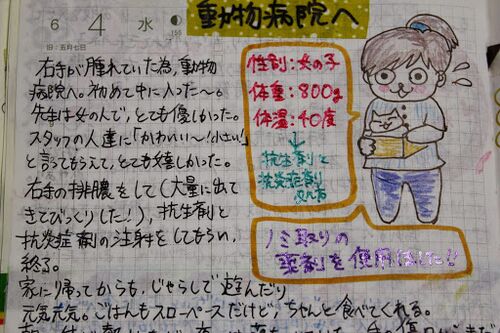 6 4 水
155
旧:五月七日
動物病院へ
右手が腫れていた為、動物
病院へ。初めて中に入った〜。
先生は女の人で、とても優しかった。
スタッフの人達に「かわいい〜!小さい!」
と言ってもらえて、とても嬉しかった。
右手の排膿をして(大量に出て
きてびっくりした!)、抗生剤と
抗炎症剤の注射をしてもらい、
終了。
家に帰ってからも、じゃらしで遊んだり
元気元気。ごはんもスローペースだけど、ちゃんと食べてくれる。
性別:女の子
体重:800g
体温:40度
抗生剤と
抗炎症剤
ノミ取りの
薬剤を使用しました!!